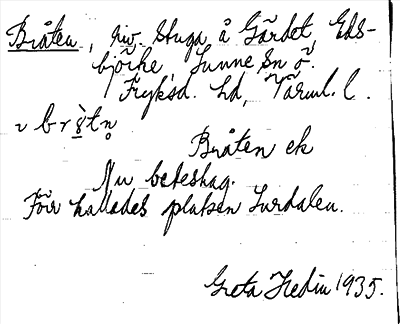 Bråten, riv. stuga å Gärdet, Eds-
björke Sunne sn ö.
Fryksd. hd, Värml. l.
v br
Bråten ek
Nu beteshag.
Förr kallades platsen Surdalen.
Greta Hedin 1935.